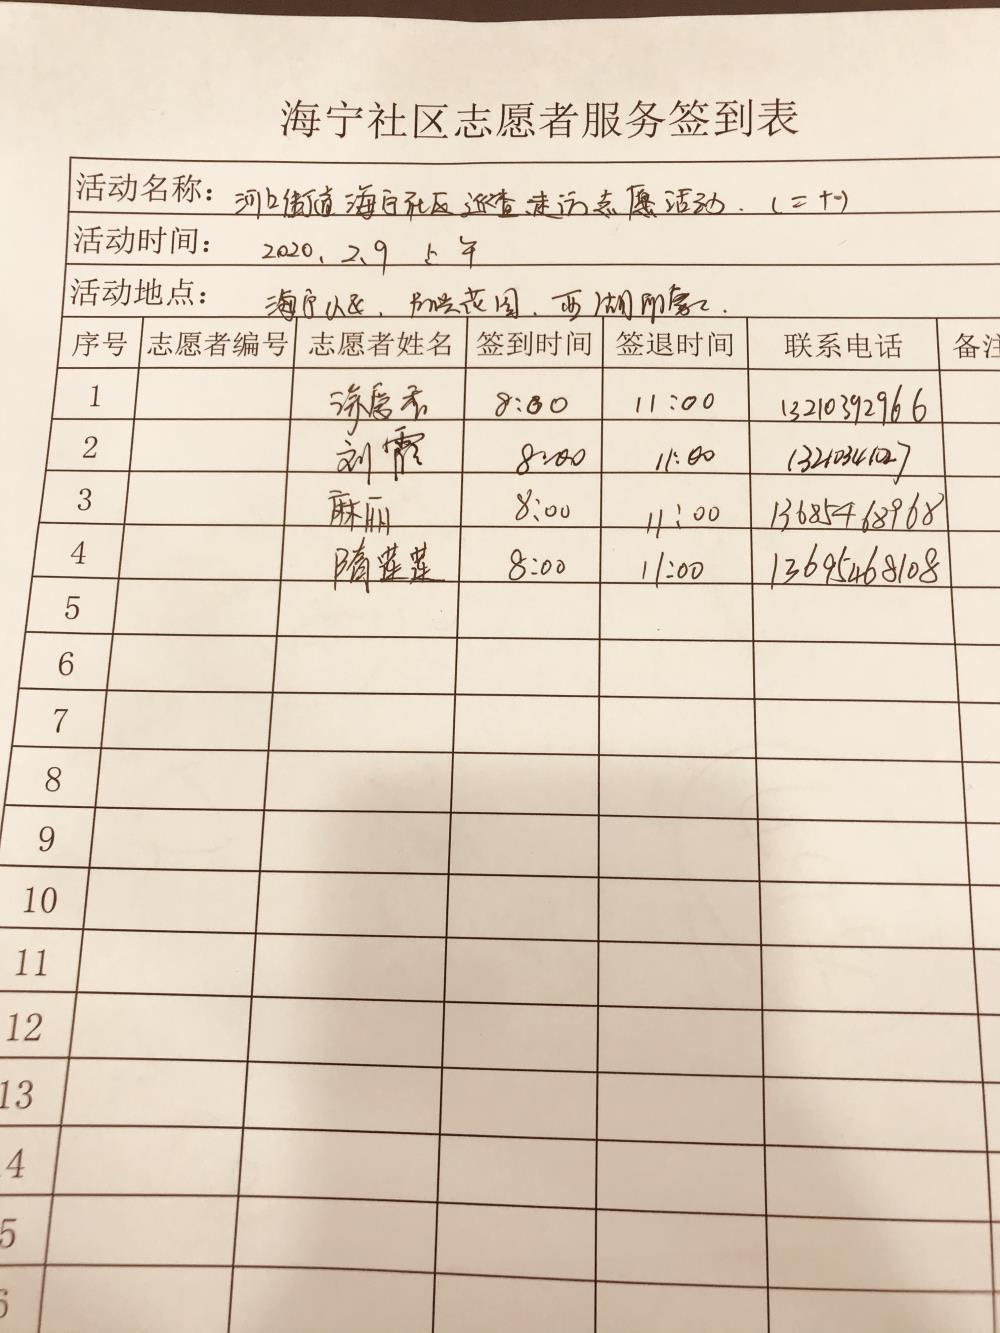 海宁社区志愿者服务签到表
活动名称: 河口街道海宁社区巡查走访志愿活动.(二十一)
活动时间: 2020、2、9 上午
活动地点: 海宁小区、花园、西湖印象
序号 志愿者编号 志愿者姓名 签到时间 签退时间 联系电话 备注
1 8:00 11:00 13210392966
2 刘霞 8:00 11:00
3 麻丽 8:00 11:00 13685468968
4 隋莲莲 8:00 11:00 13695468108
5
6
7
8
9
10
11
12
13
4
5
6